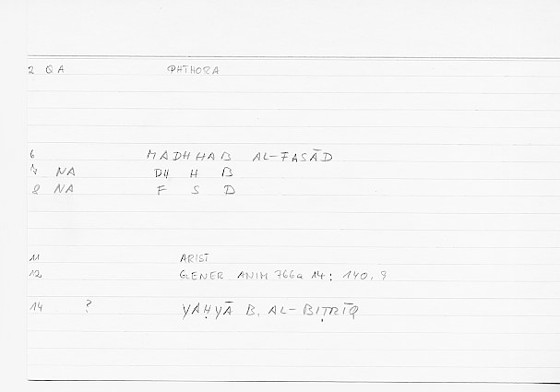 2 QA ΦHTHORA
6 MADHHAB AL-FASĀD
7 NA DH H B
8 NA F S D
11 ARIST
12 GENER ANIM 766a 14: 140.9
14 ? YAḤYĀ B. AL-BIṬRĪQ